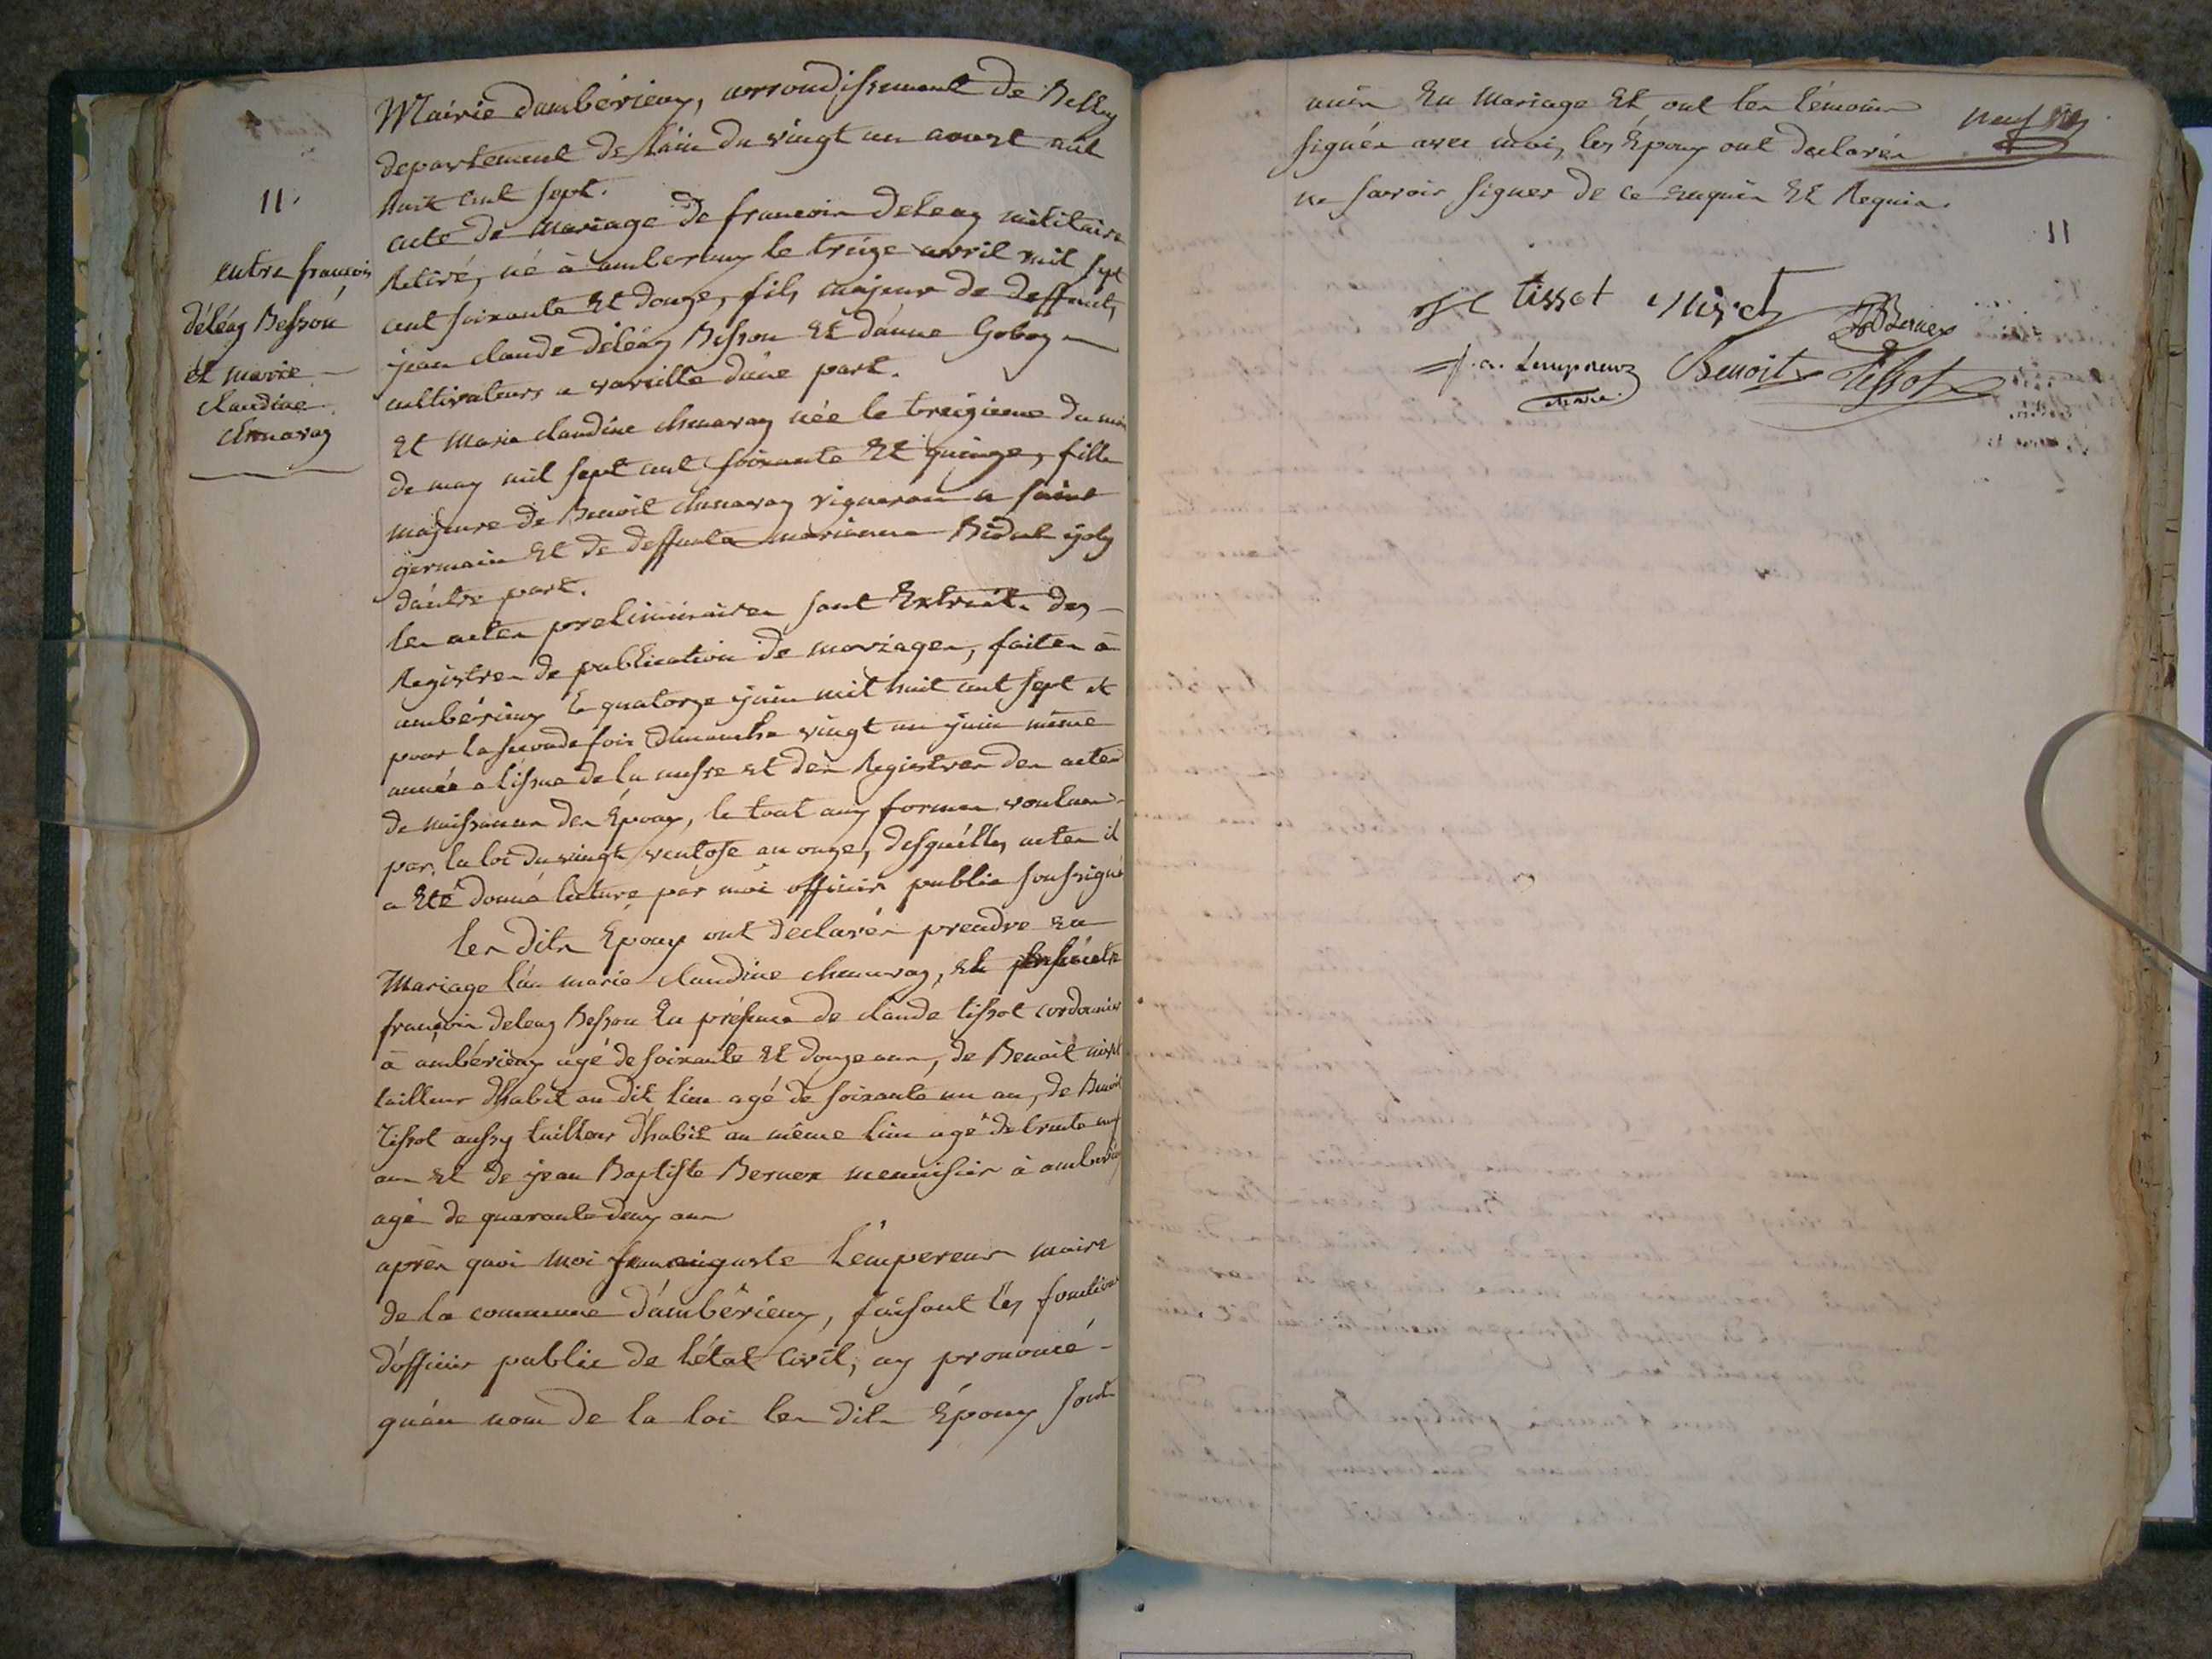 11.
entre françois
déléaz Besson
et marie
claudine
chenavaz
Mairie dambérieux, arrondissement de Belley
departement de lain du vingt un aoust mil
huit cent sept.
acte de mariage de francois deleaz militaire
Retiré, né à amberieux le treize avril mil sept
cent soixante Et douze, fils majeur de deffunts
jean claude déléaz Besson Et d'anne Goboz
cultivateurs a vareille d'une part.
Et Marie claudine chenavaz née le treizieme du mois
de may mil sept cent soixante Et quinze, fille
majeure de Benoit chenavaz vigneron a saint
germain Et de deffunte marianne Bidal joly
d'autre part.
les actes preliminaires sont Extraits des
Registres de publication de mariages, faites à
ambérieux le quatorze juin mil huit cent sept et
pour la seconde fois dimanche vingt un juin même
année a lissue de la messe et des Registres des actes
de naissances des Époux, le tout aux formes voulues
par la loi du vingt ventose an onze, desquelles actes il
a Eté donné lecture par moi officier public soussigné
les dits Époux ont declarés prendre en
Mariage l'un marie claudine chenavaz, et
françois deleaz Besson En présence de claude tissot cordonnier
à ambérieux agé de soixante Et douze ans, de Benoit nizet
tailleur d'habit au dit lieu agé de soixante un an, de Benoit
Tissot aussy tailleur d'habit au même lieu agé de trente neuf
ans Et de jean Baptiste Bernex menuisier à amberieux
agé de quarante deux ans
après quoi moi jean auguste Lempereur maire
de la commune d'ambérieux, faisant les fonctions
d'officier public de l'état civil, ay prononcé
qu'au nom de la loi les dits Époux sont
unis En Mariage Et ont les témoins
signés avec moi, les Époux ont declarés
ne savoir signer de ce enquis Et Requis.
neuf
11
tissot nizet JBBernex
j. a. Lempereur Benoit Tissot
maire.